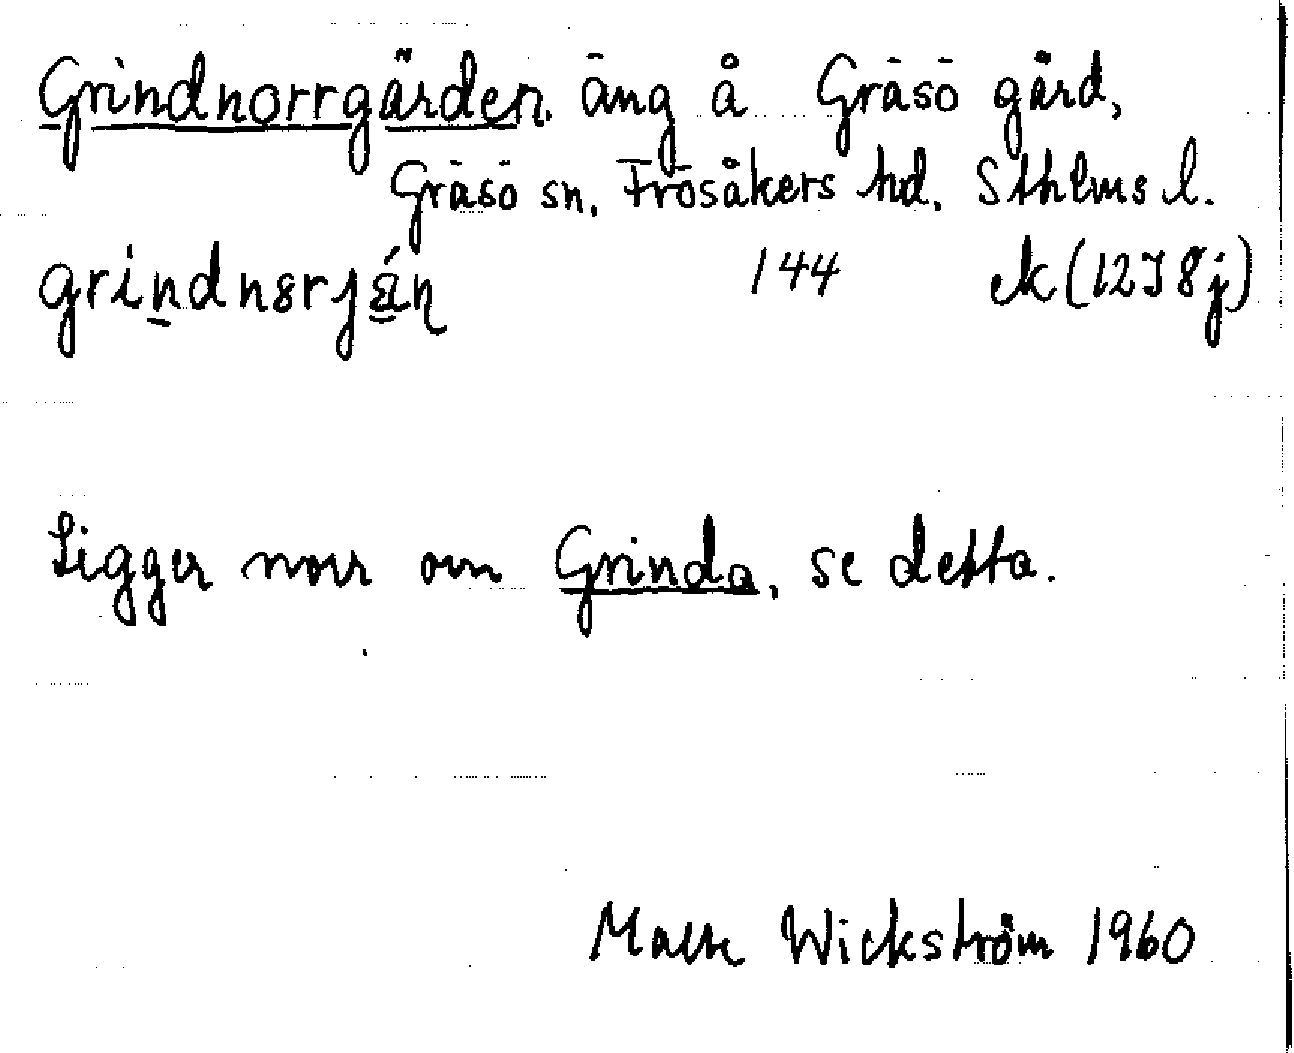 Grindnorrgärden, äng å Gräsö gård,
Gräsö sn, Frösåkers hd, Sthlms l.
144 ek (12I8j)
Ligger norr om Grinda, se detta.
Malte Wickström 1960